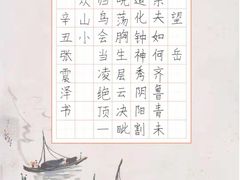 望岳
夫如何齐鲁青未
化钟神秀阴阳割
晓荡胸生层云决眦
归鸟会当凌绝顶一
山小
辛丑张震泽书